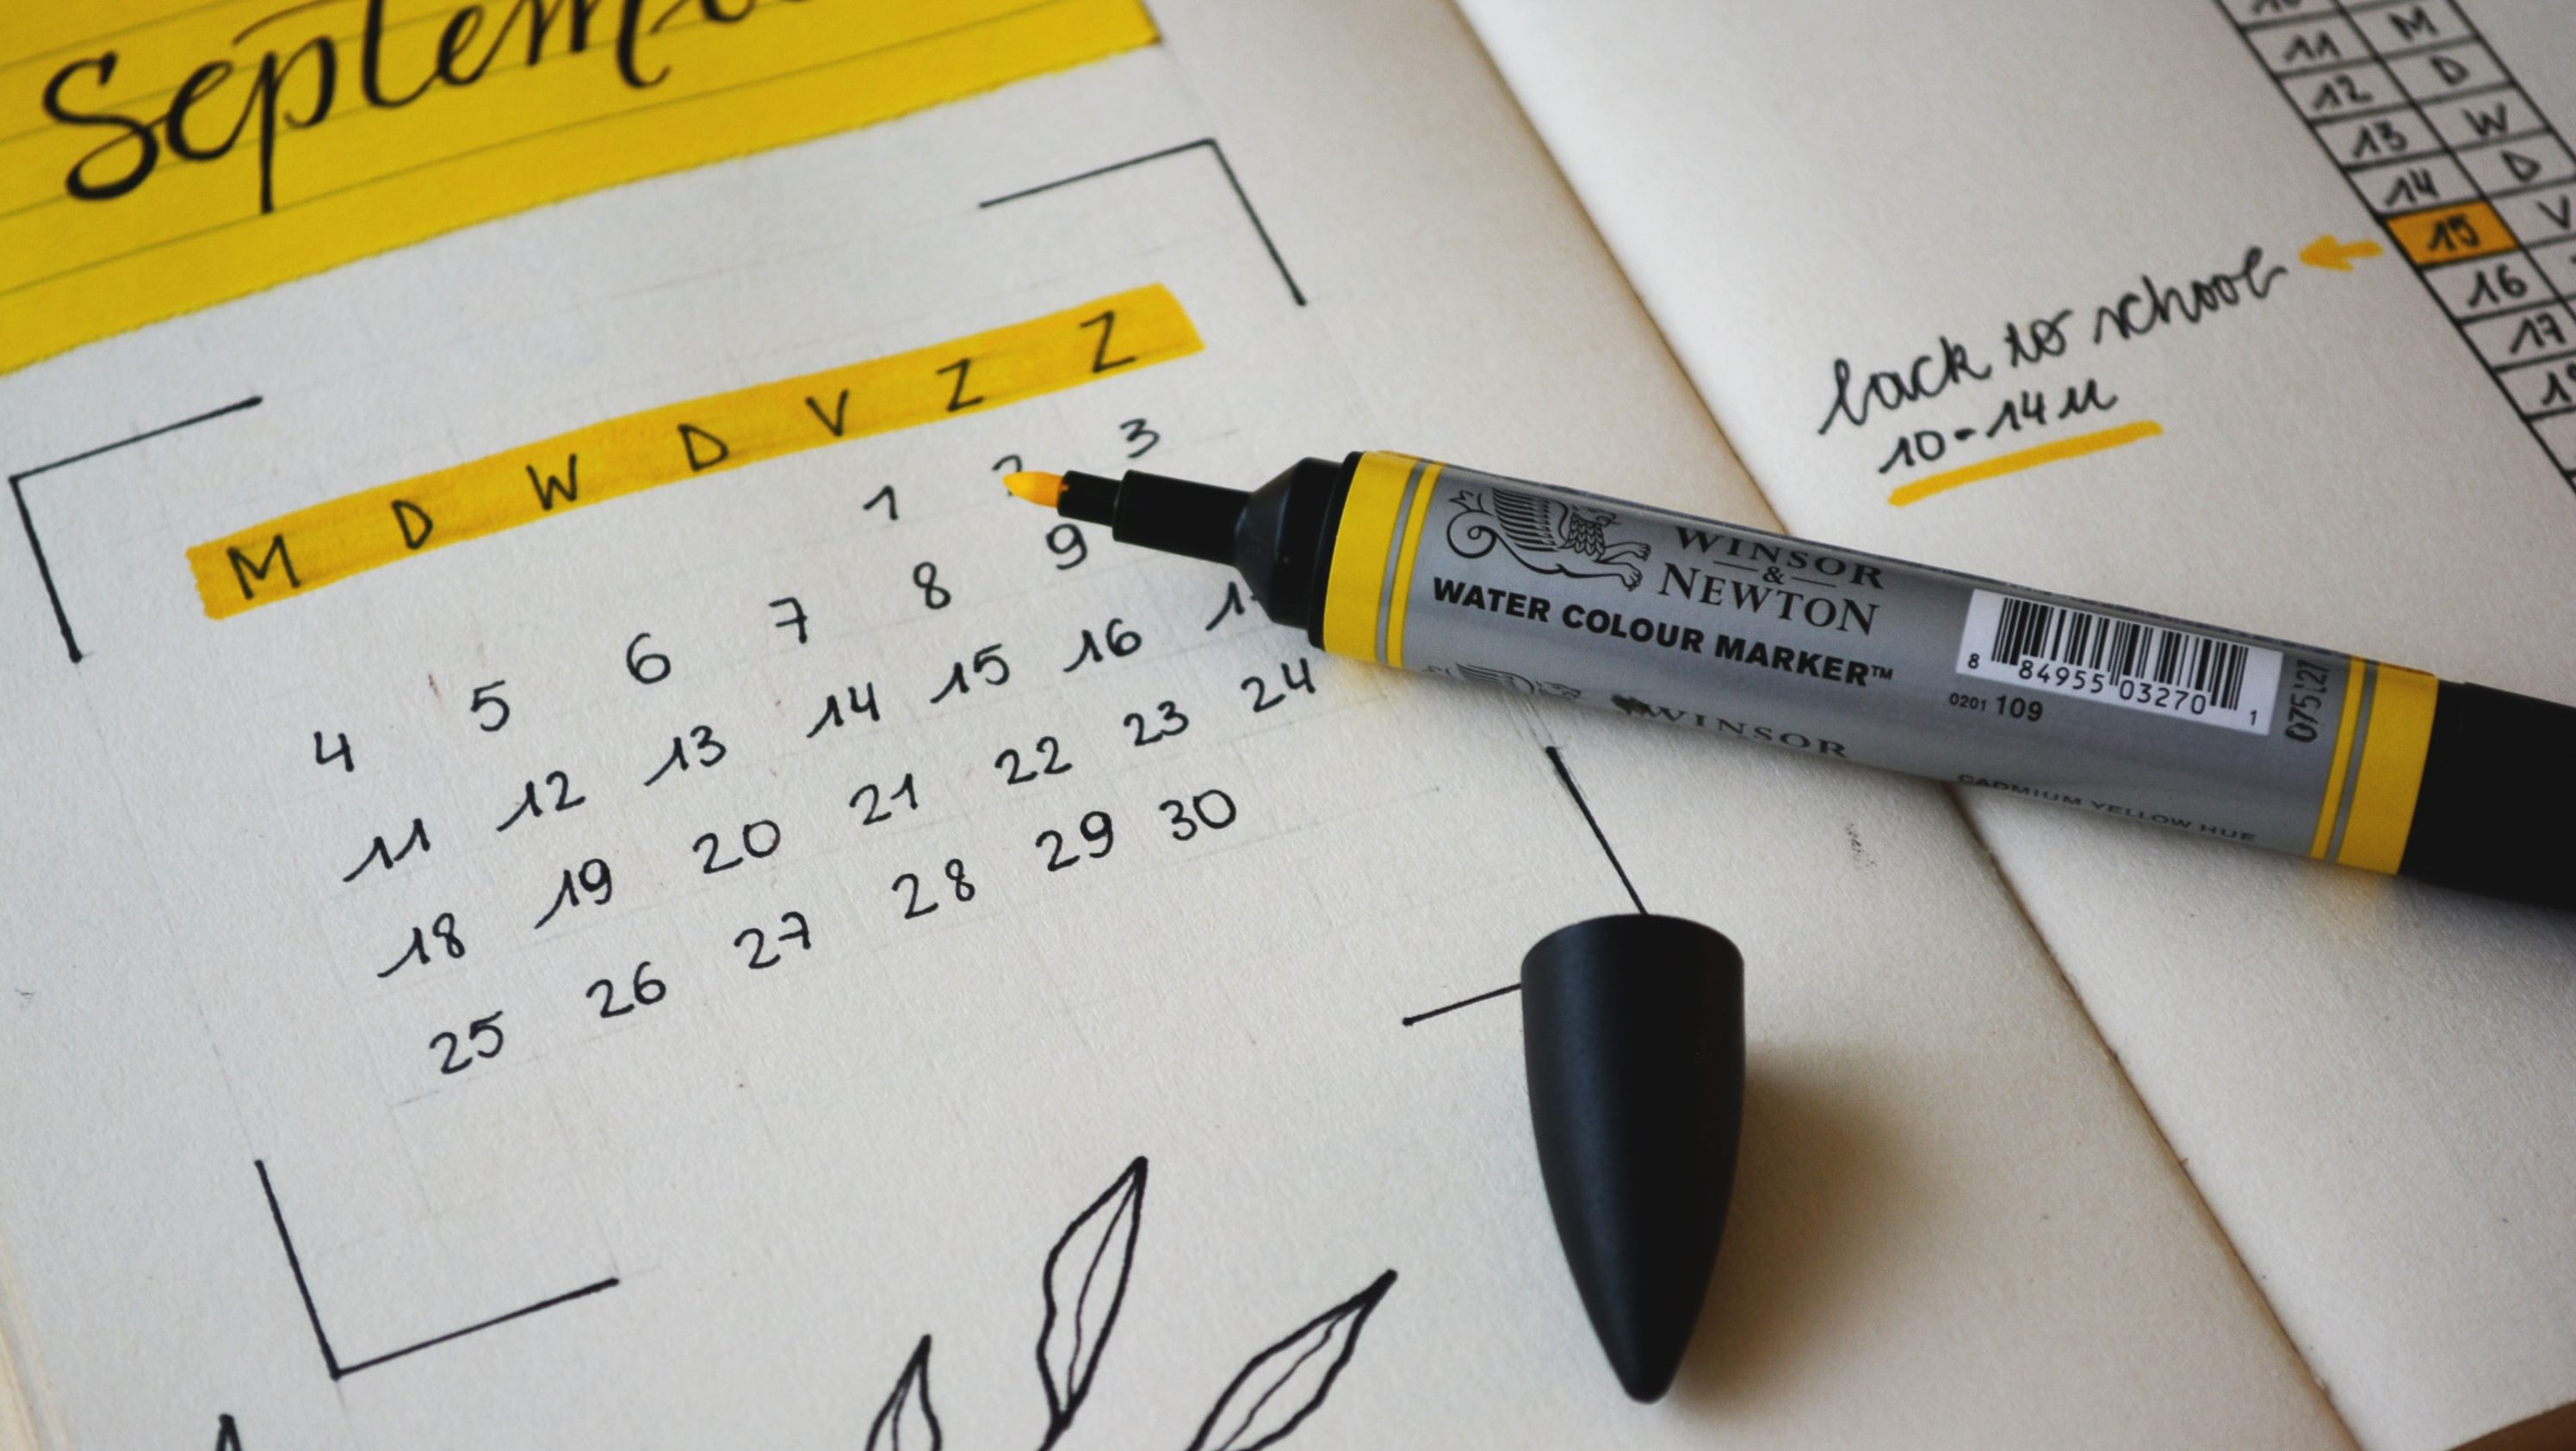 Septem
M D W D V Z Z
1 2 3
4 5 6 7 8 9
11 12 13 14 15 16
18 19 20 21 22 23 24
25 26 27 28 29 30
11 M
12 D
13 W
14 D
15 V
16
17
back to school
10-14 u
WINSOR
&
NEWTON
WATER COLOUR MARKER™
8 84955 03270 1
0201 109
075127
WINSOR
CADMIUM YELLOW HUE